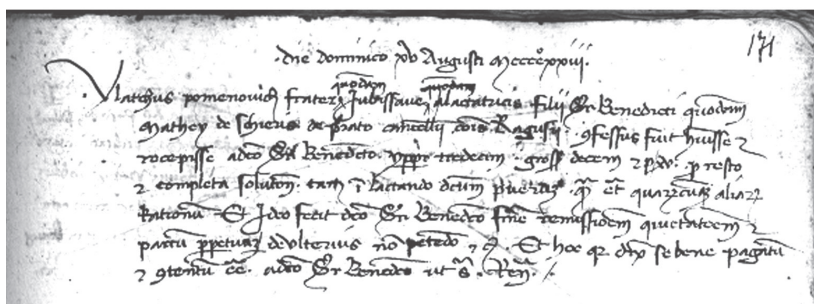 171
die dominico xv Augusti Mccccxxvii.
quodam quodam
Vlatchus pomenovich frater Jubissave alactatricis filij Ser Benedicti quodam
Mathey de Schieris de prato cancellarij cois Ragusij. 9fessus fuit huisse et
recepisse a dco Ser Benedicto yppr tredecim gross decem et pro resto
et completa solution tam i lactando dcum pueruz. qr et quarucuz aliarz
Rationu Et Ideo fecit dco Ser Benedco fine remissionem quietationem et
pactu perpetuuz de ulterius no petendo et c. Et hoc qr dix se bene pagatu
et 9tentu ee. a dco Ser Benedco ut s. Ren.